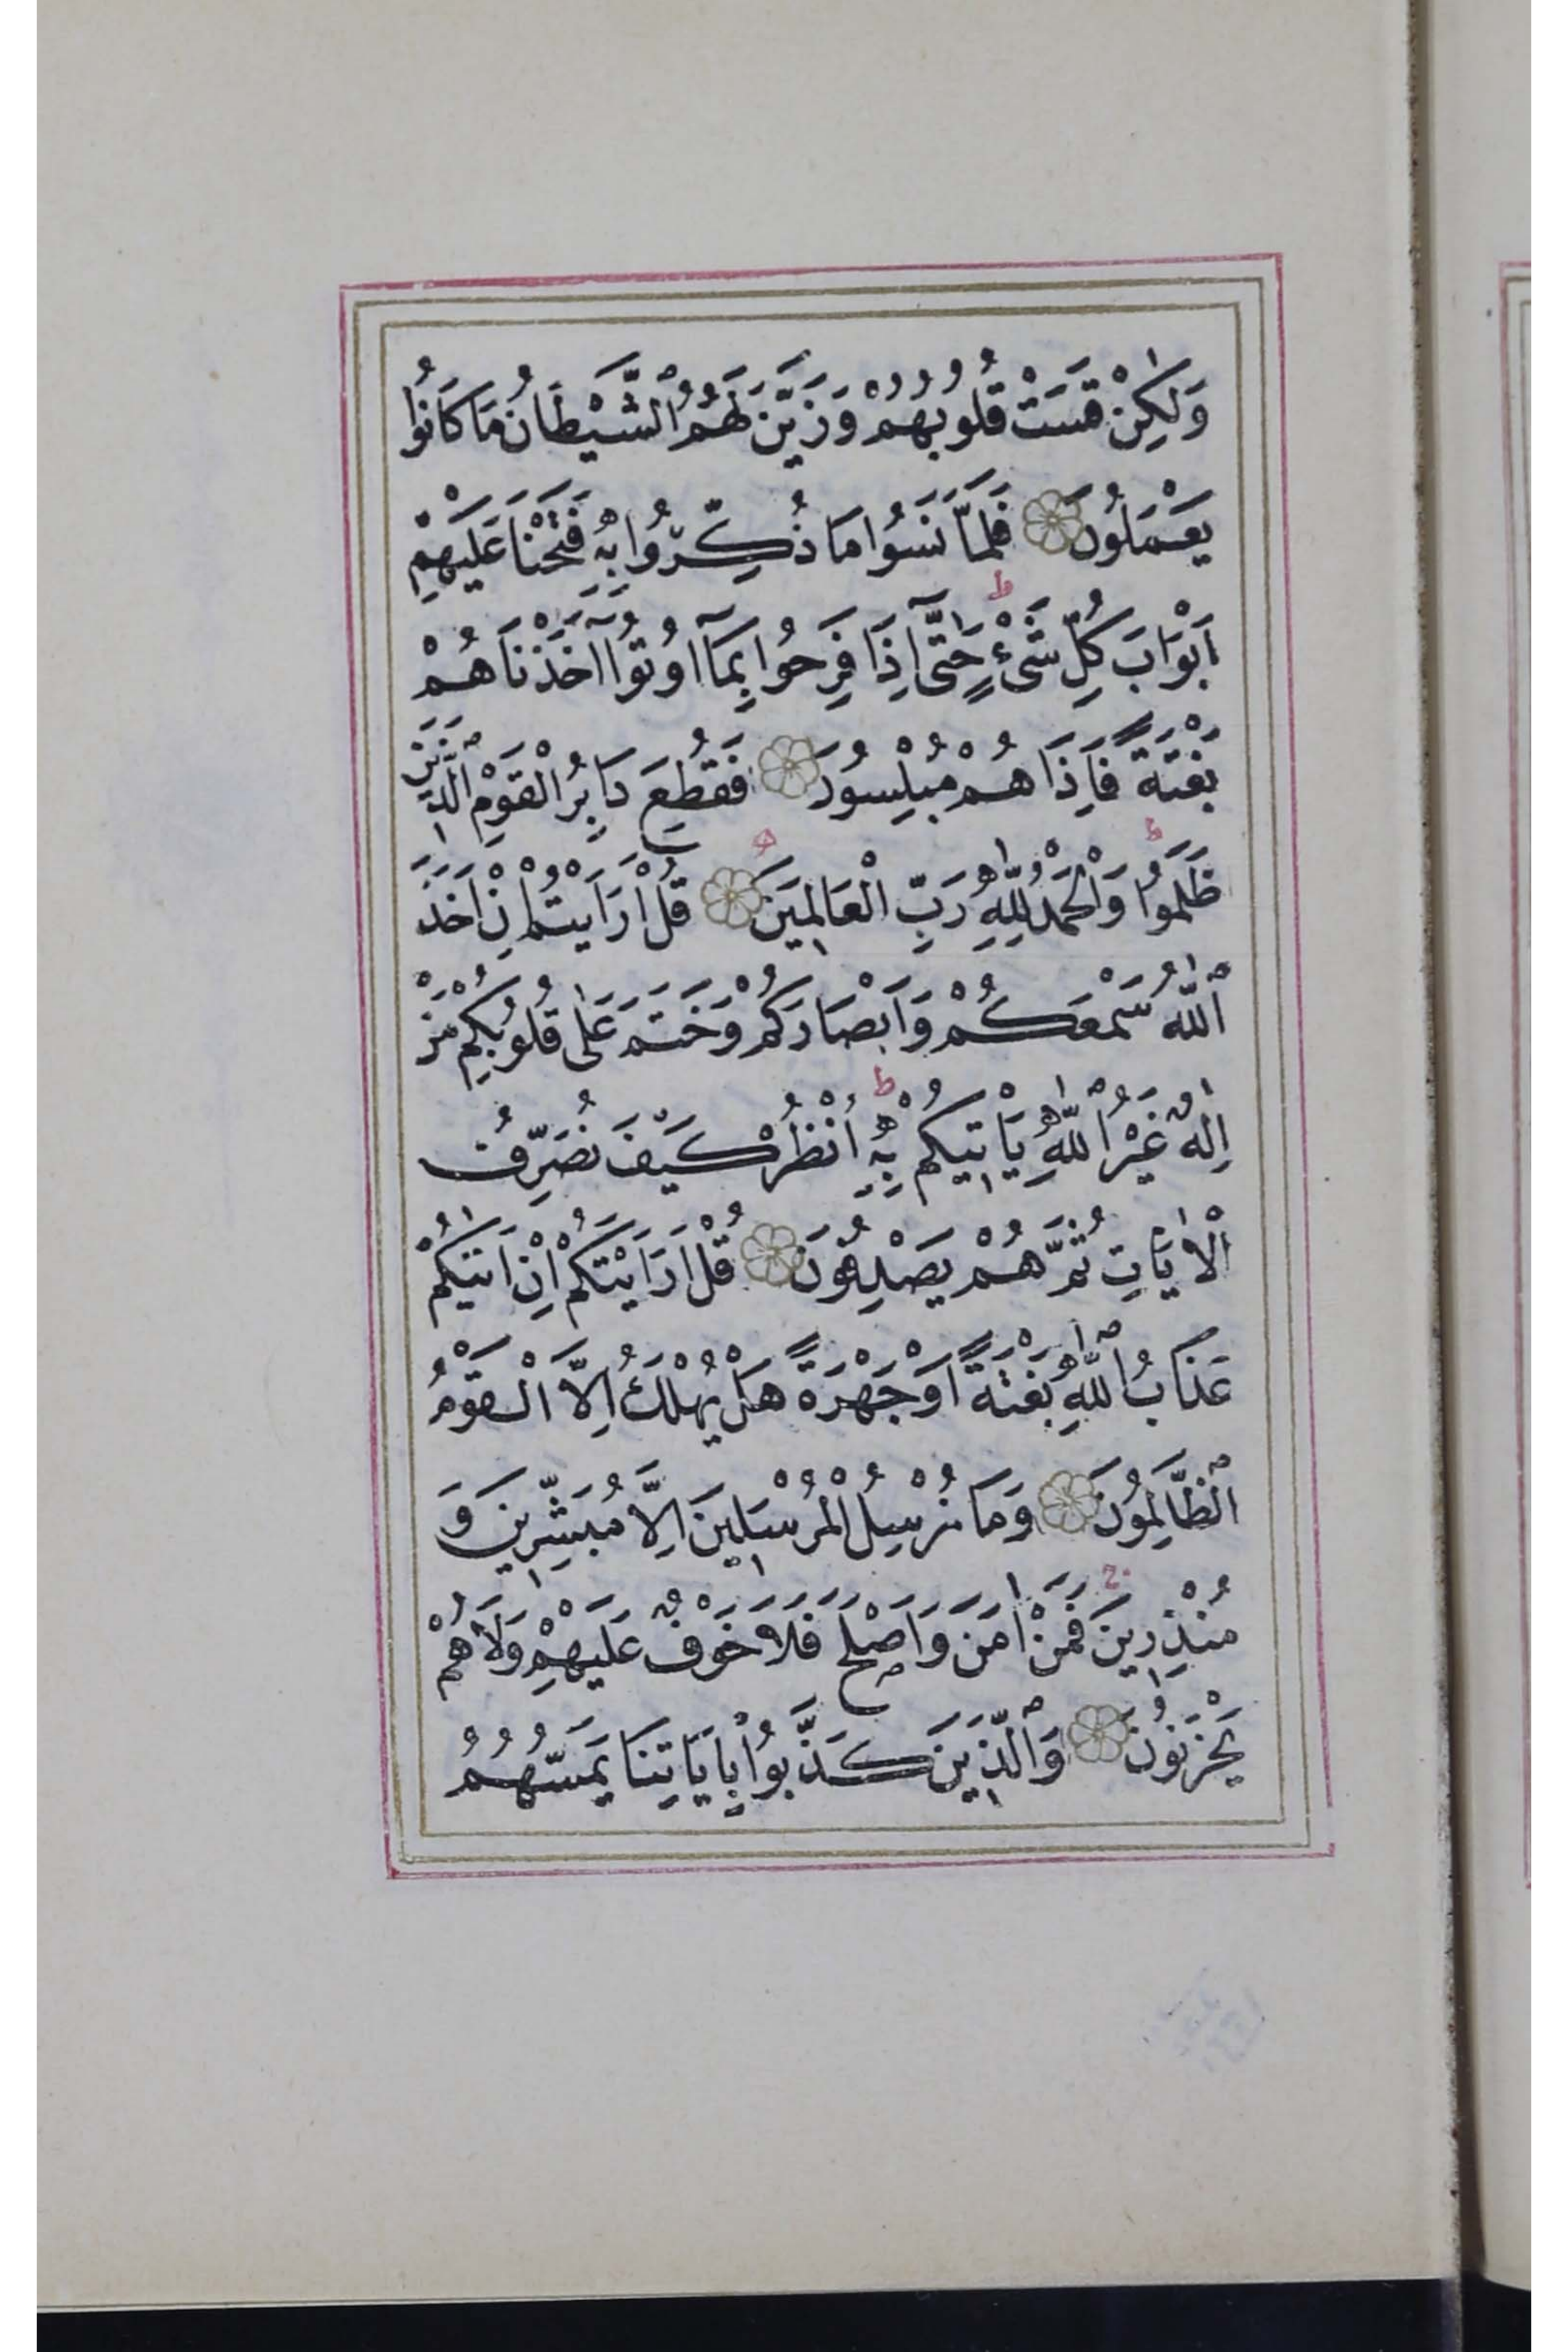 وَلٰكِنْ قَسَتْ قُلُوبُهُمْ وَزَيَّنَ لَهُمُ الشَّيْطَانُ مَا كَانُوا
يَعْمَلُونَ فَلَمَّا نَسُوا مَا ذُكِّرُوا بِهِ فَتَحْنَا عَلَيْهِمْ
اَبْوَابَ كُلِّ شَىْءٍ ط حَتّٰٓى اِذَا فَرِحُوا بِمَآ اُوتُوآ اَخَذْنَاهُمْ
بَغْتَةً فَاِذَا هُمْ مُبْلِسُونَ فَقُطِعَ دَابِرُ الْقَوْمِ الَّذِينَ
ظَلَمُوا ط وَالْحَمْدُ لِلّٰهِ رَبِّ الْعَالَمِينَ قُلْ اَرَاَيْتُمْ اِنْ اَخَذَ
اللّٰهُ سَمْعَكُمْ وَاَبْصَارَكُمْ وَخَتَمَ عَلٰى قُلُوبِكُمْ مَنْ
اِلٰهٌ غَيْرُ اللّٰهِ يَاْتِيكُمْ بِهِ ط اُنْظُرْ كَيْفَ نُصَرِّفُ
الْاٰيَاتِ ثُمَّ هُمْ يَصْدِفُونَ قُلْ اَرَاَيْتَكُمْ اِنْ اَتٰيكُمْ
عَذَابُ اللّٰهِ بَغْتَةً اَوْ جَهْرَةً هَلْ يُهْلَكُ اِلَّا الْقَوْمُ
الظَّالِمُونَ وَمَا نُرْسِلُ الْمُرْسَلِينَ اِلَّا مُبَشِّرِينَ وَ
مُنْذِرِينَ ج فَمَنْ اٰمَنَ وَاَصْلَحَ فَلَا خَوْفٌ عَلَيْهِمْ وَلَا هُمْ
يَحْزَنُونَ وَالَّذِينَ كَذَّبُوا بِاٰيَاتِنَا يَمَسُّهُمُ